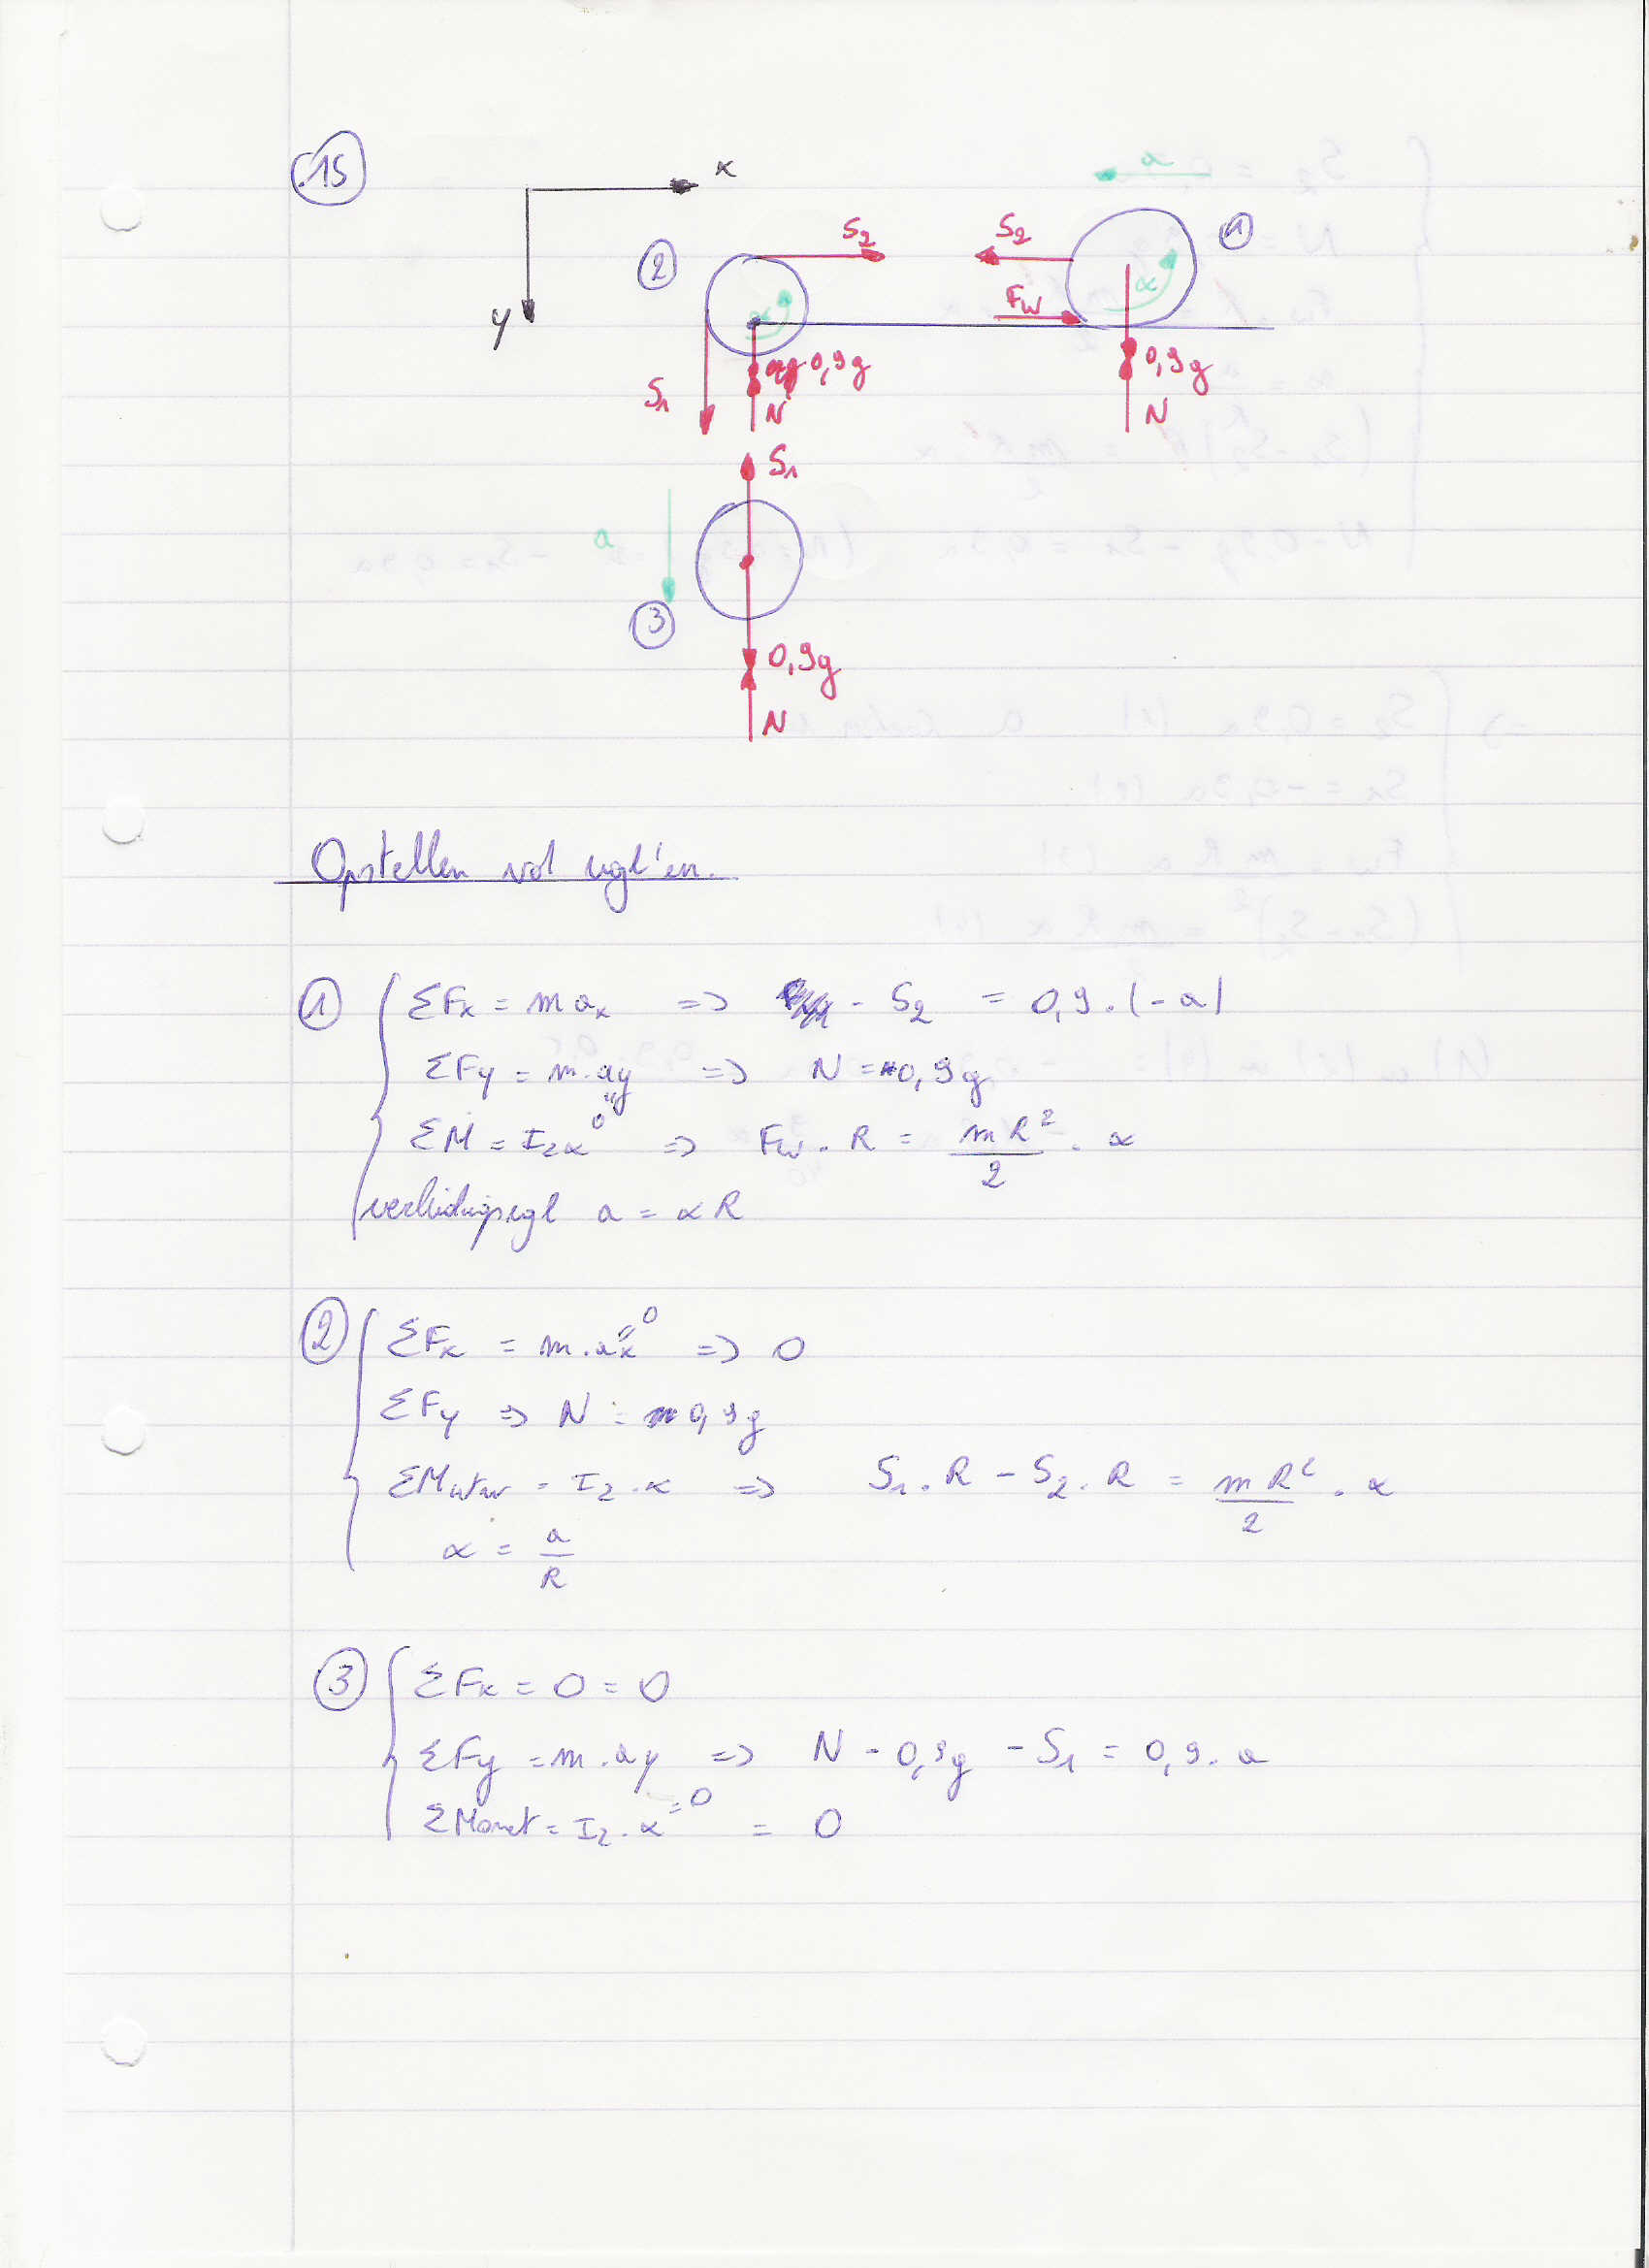 15
x
y
2
S2
S2
1
Fw
α
α
a
S1
0,9g
N
0,9g
N
S1
a
3
0,9g
N
Opstellen vol vgl'en.
1 ΣFx = m ax => - S2 = 0,9.(-a)
ΣFy = m.ay => N = 0,9g
"
0
ΣM = Izα => Fw . R = mR²/2 . α
verbindingsvgl a = αR
2 ΣFx = m.ax "0 => 0
ΣFy => N = 0,9g
ΣMwtw = Iz.α => S1.R - S2.R = mR²/2 . α
α = a/R
3 ΣFx = 0 = 0
ΣFy = m.ay => N - 0,9g - S1 = 0,9.a
ΣMomt = Iz.α =0 = 0